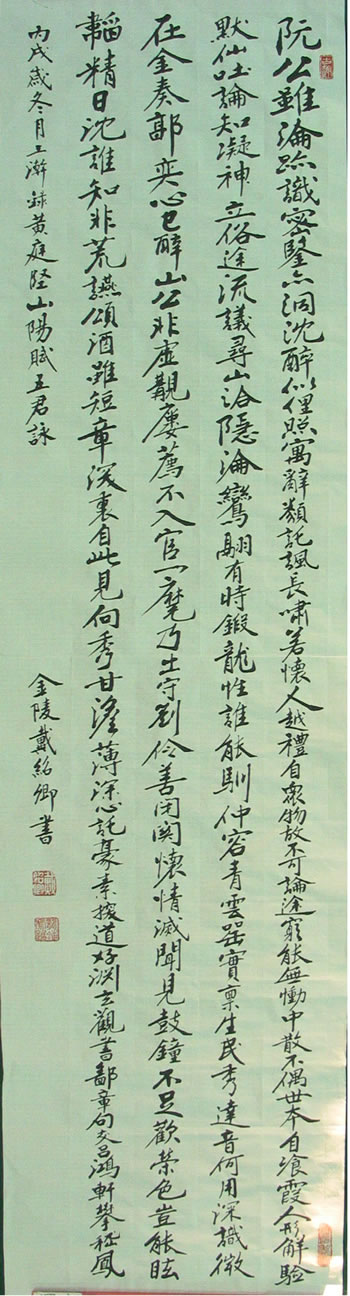 阮公雖淪跡識密鑒亦洞沈醉似埋照寓辭類託諷長嘯若懷人越禮自衆物故不可論途窮能無慟中散不偶世本自飡霞人形解驗
默仙吐論知凝神立俗途流議尋山洽隱淪鸞翮有時鍛龍性誰能馴仲容青雲器實稟生民秀達音何用深識微
在金奏郭奕心已醉山公非虛觀屢薦不入官一麾乃出守劉伶善閉關懷情滅聞見鼓鐘不足歡榮色豈能眩
韜精日沈誰知非荒讌頌酒雖短章深衷自此見向秀甘淡薄深心託豪素探道好淵玄觀書鄙章句交呂鴻軒攀嵇鳳
丙戌歲冬月上澣錄黃庭堅山陽賦五君詠
金陵戴紹卿書